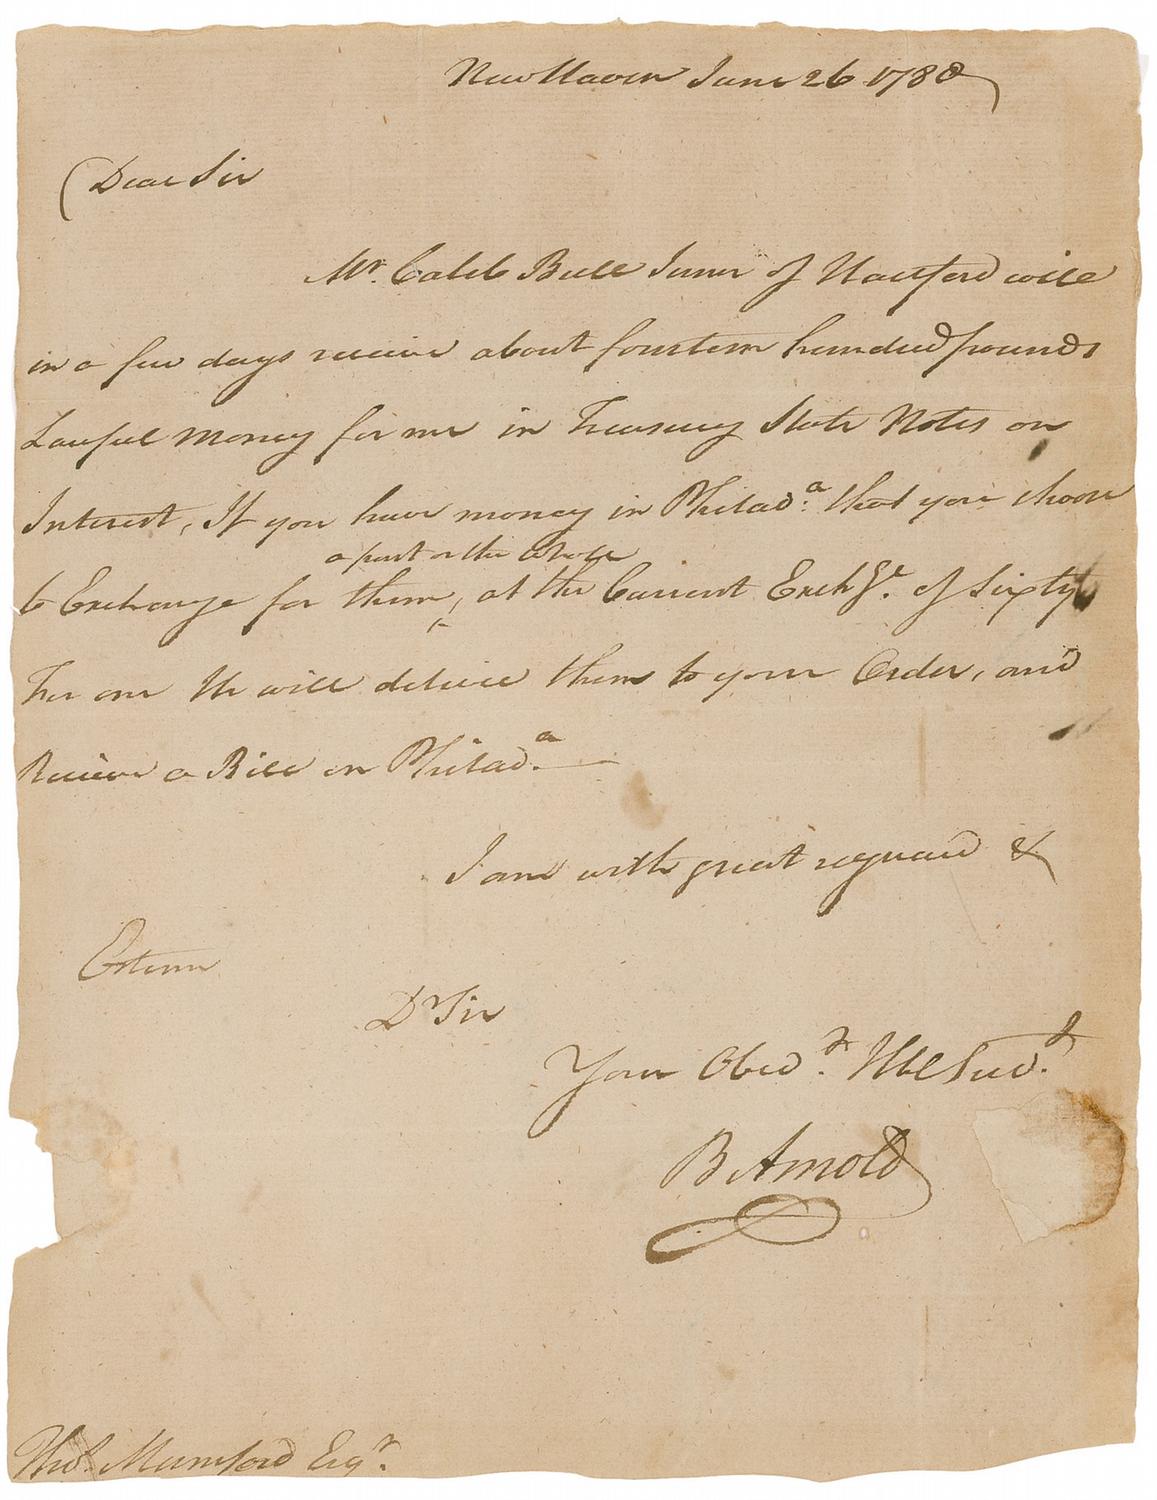 New Haven June 26 1780
Dear Sir
Mr. Caleb Bull Junor of Hartford will
in a few days receive about fourteen hundred pounds
Lawful money for me in Treasury State Notes on
Interest, If you have money in Philada. that you choose
a part or the whole
to Exchange for them, at the Current Exchge. of Sixty
For one He will deliver them to your Order, and
Recieve a Bill on Philada.
I am with great reguard &
Esteem
Dr Sir
Your Obedt. Hble Servt.
B Arnold
Thos. Mumford Esqr.